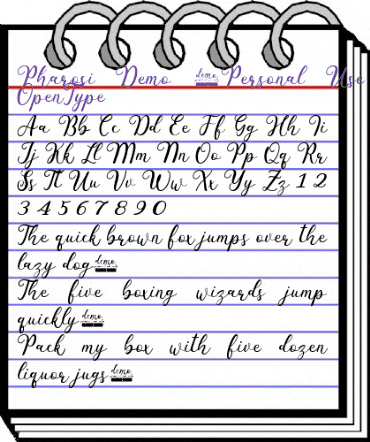 Pharosi Demo demo Personal Use
OpenType
Aa Bb Cc Dd Ee Ff Gg Hh Ii
Jj Kk Ll Mm Nn Oo Pp Qq Rr
Ss Tt Uu Vv Ww Xx Yy Zz 1 2
3 4 5 6 7 8 9 0
The quick brown fox jumps over the
lazy dog demo
The five boxing wizards jump
quickly demo
Pack my box with five dozen
liquor jugs demo